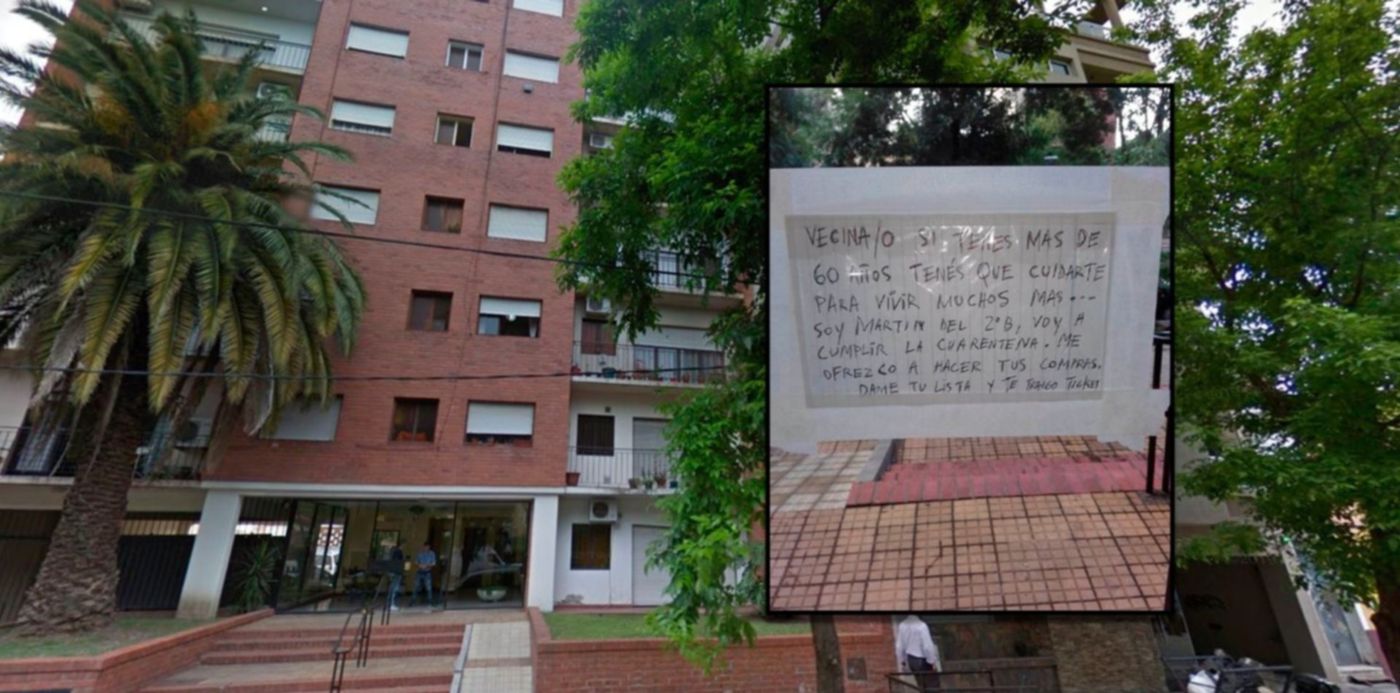 VECINA/O SI TENES MAS DE
60 AÑOS TENÉS QUE CUIDARTE
PARA VIVIR MUCHOS MAS...
SOY MARTIN DEL 2°B, VOY A
CUMPLIR LA CUARENTENA. ME
OFREZCO A HACER TUS COMPRAS.
DAME TU LISTA Y TE TRAIGO TICKET